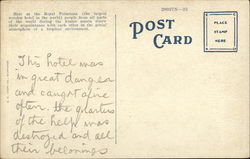 Here at the Royal Poinciana (the largest
wooden hotel in the world) people from all parts
of the world during the winter season renew
their acquaintance with each other in the genial
atmosphere of a tropical environment.
POST
CARD
PLACE
STAMP
HERE
This hotel was
in great danger
and caught fire
often. The quarters
of the help was
destroyed and all
their belongings